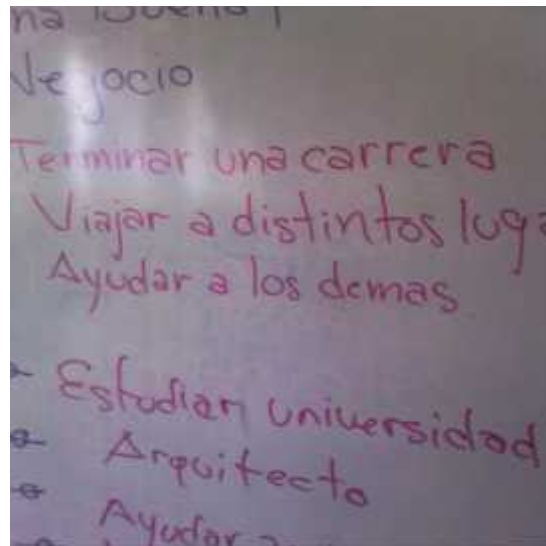 na Buena
Negocio
Terminar una carrera
Viajar a distintos luga
Ayudar a los demas
Estudiar universidad
Arquitecto
Ayudar a